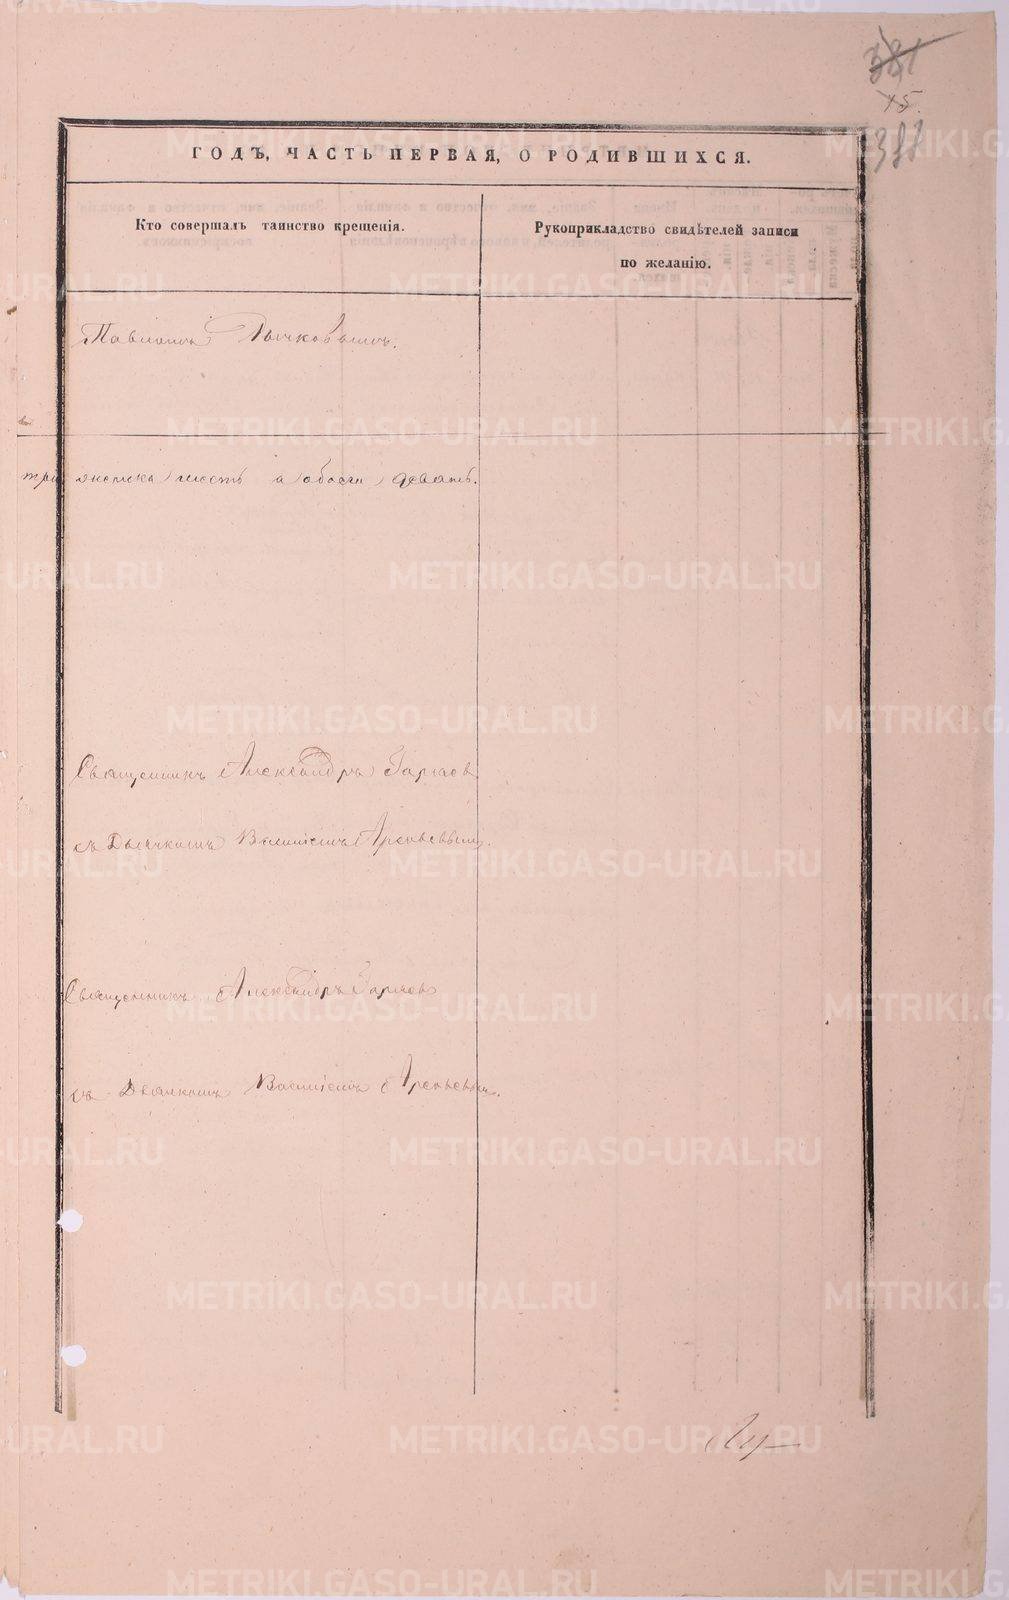 381
45.
388
ГОДЪ, ЧАСТЬ ПЕРВАЯ, О РОДИВШИХСЯ.
Кто совершалъ таинство крещенія.
Рукоприкладство свидѣтелей записи
по желанію.
Павломъ Рычковымъ.
три женска шесть а обоего девять.
Священникъ Александръ
съ Дьячкомъ Василіемъ Арсеньевымъ.
Священникъ Александръ
съ Дьячкомъ Василіемъ Арсеньевымъ.
METRIKI.GASO-URAL.RU